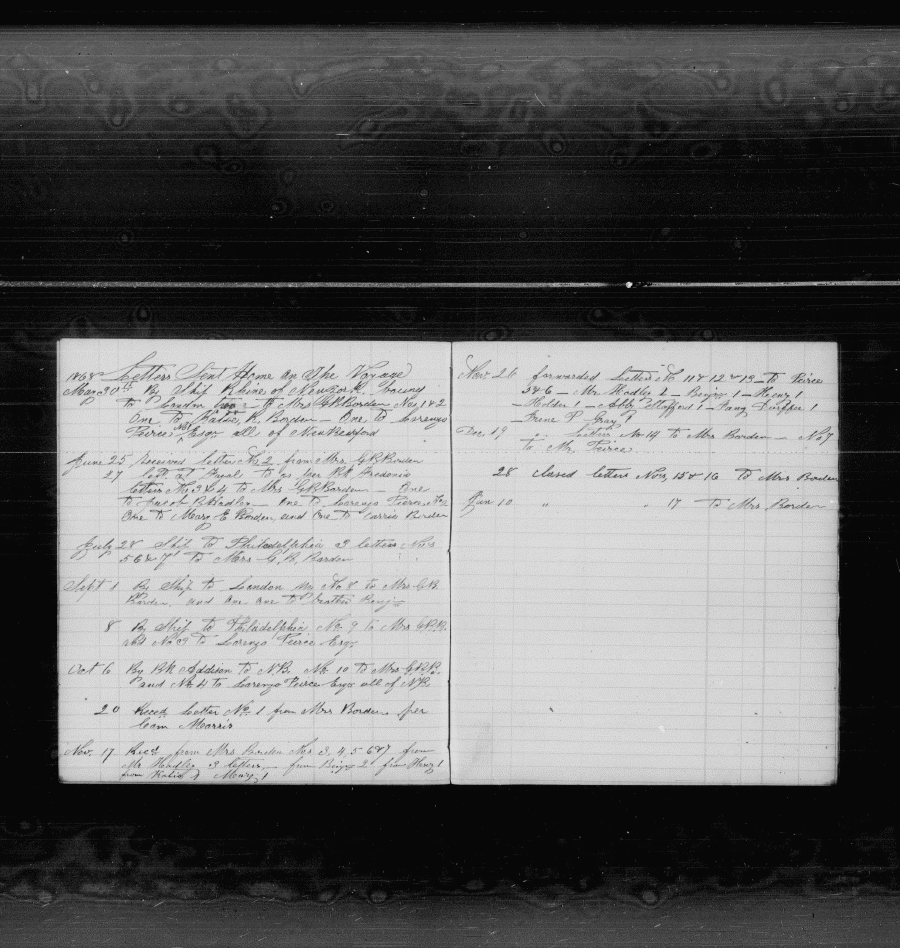 1868 Letters Sent Home on the Voyage
Mar 30th By Ship Rhine of New York, bound
to London two - to Mrs G.R. Borden Nos 1 & 2
One to Katie R. Borden - One to Lorenzo
Peirce Esq all of New Bedford
June 25 received letter No 2 from Mrs G.R. Borden
27 to go per Bk
letters No 3 & 4 to Mrs G.R. Borden - One
to Jacob B. Hadley - One to Lorenzo Peirce No 2
One to Mary E. Borden, and One to Carrie Borden
July 28 Ship to Philadelphia 3 letters Nos
5 6 & 7 to Mrs G.R. Borden
Sept 1 By Ship to London No 8 to Mrs G.R.
Borden, and one to Benj
8 By Ship to Philadelphia No 9 to Mrs G.R.B.
and No to Lorenzo Peirce Esq
Oct 6 By Bk Addison to N.B. No 10 to Mrs G.R.B.
and No 4 to Lorenzo Peirce Esq all of N.B.
20 Reced Letter No 1 from Mrs Borden per
Morris
Nov. 17 Recd from Mrs Borden Nos 3, 4, 5 6 & 7 from
Mr Hadley 3 letters - from Benj 2 from Henry 1
from Katie Mary 1
Nov 26 forwarded letters No 11 & 12 & 13 - to Peirce
5 & 6 - Mr Hadley 2 - Benj 1 - Henry 1
- Holden 1 - Stafford 1 - 1
- Gray
Dec. 19 " Letters No 14 to Mrs Borden - No 7
to Mr Peirce
28 closed letters Nos 15 & 16 to Mrs Borden
Jan 10 " " 17 to Mrs Borden